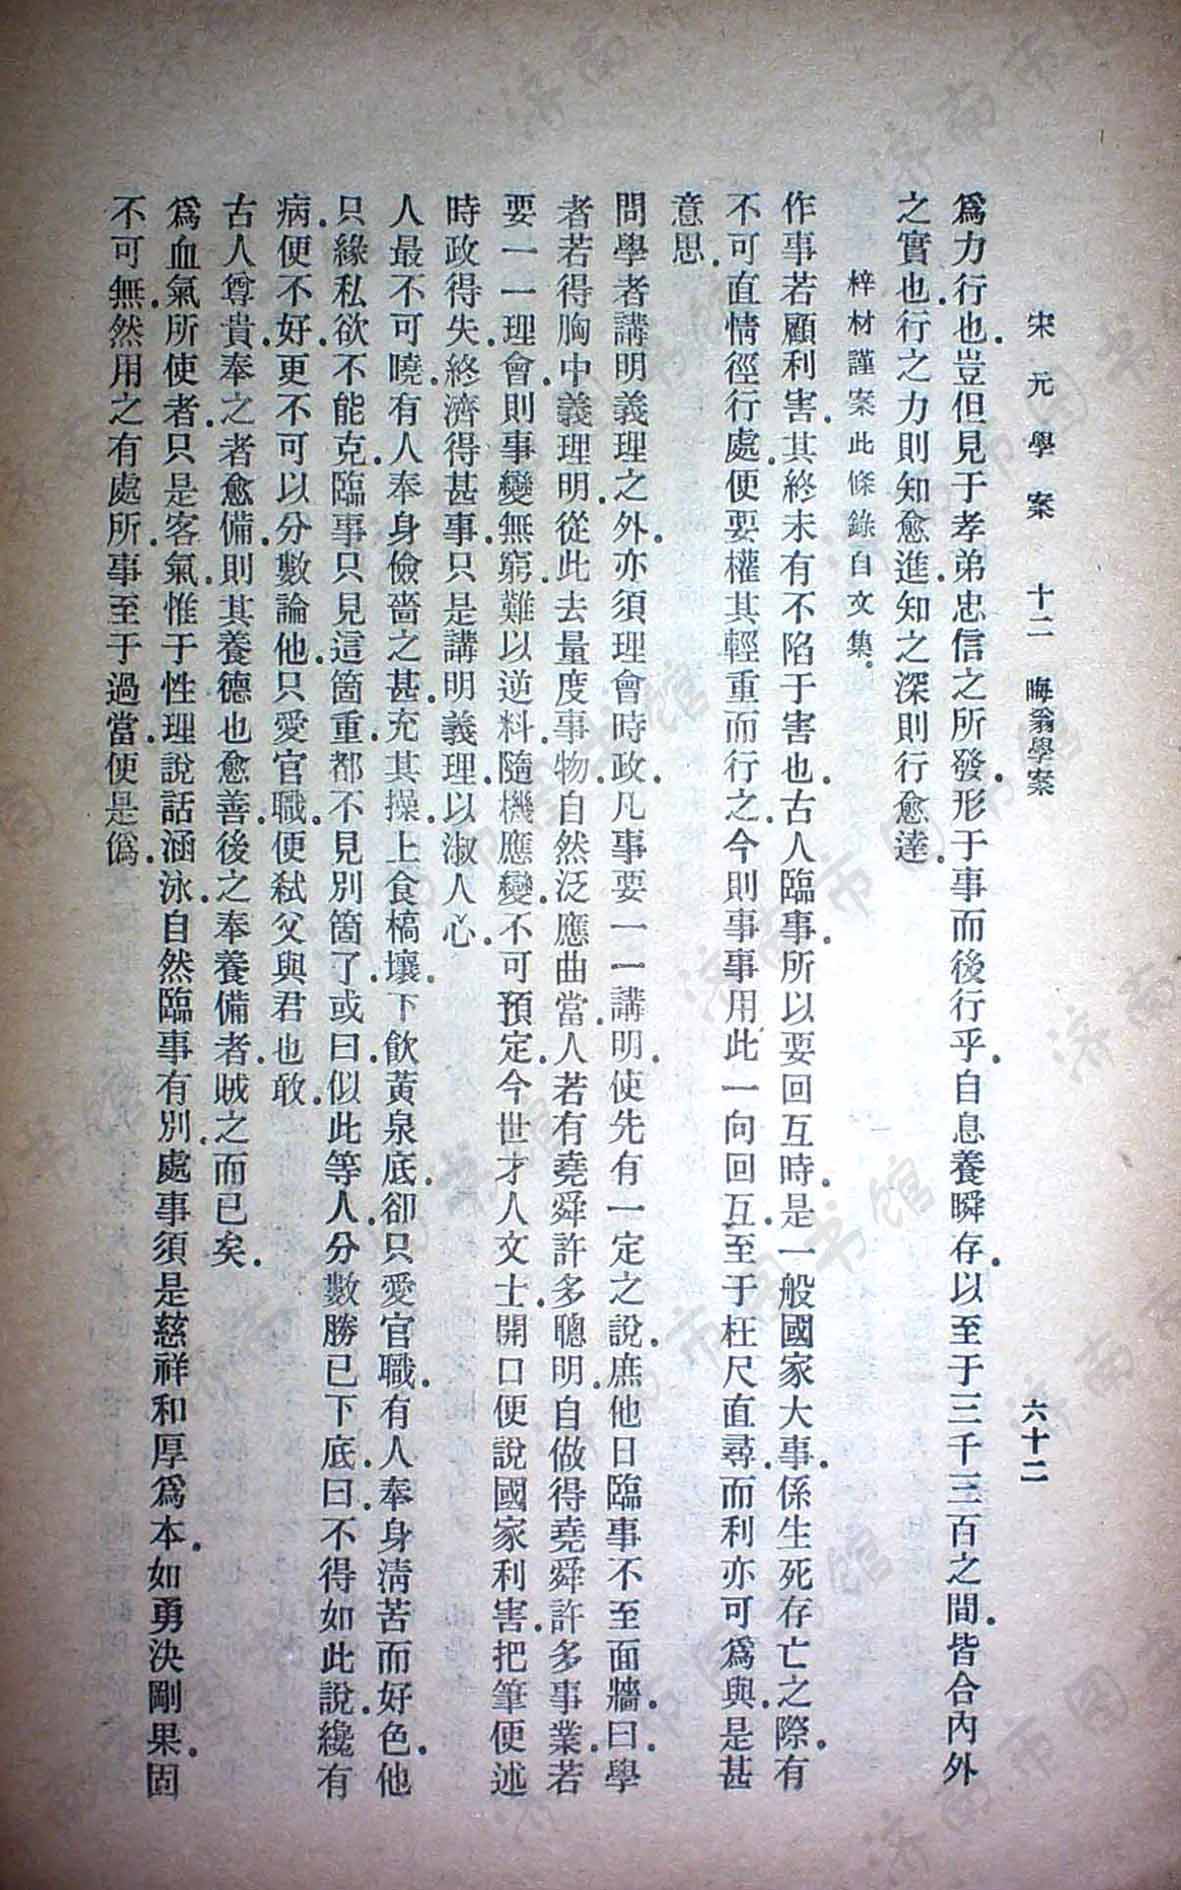 宋元學案 十二 晦翁學案 六十二
爲力行也。豈但見于孝弟忠信之所發。形于事而後行乎。自息養瞬存。以至于三千三百之間。皆合內外
之實也。行之力則知愈進。知之深則行愈達。
梓材謹案此條錄自文集。
作事若顧利害。其終未有不陷于害也。古人臨事。所以要回互時。是一般國家大事。係生死存亡之際。有
不可直情徑行處。便要權其輕重而行之。今則事事用此一向回互。至于枉尺直尋。而利亦可爲與。是甚
意思。
問學者講明義理之外。亦須理會時政。凡事要一一講明。使先有一定之說。庶他日臨事不至面牆。曰。學
者若得胸中義理明。從此去量度事物。自然泛應曲當。人若有堯舜許多聰明。自做得堯舜許多事業。若
要一一理會。則事變無窮。難以逆料。隨機應變。不可預定。今世才人文士。開口便說國家利害。把筆便述
時政得失。終濟得甚事。只是講明義理。以淑人心。
人最不可曉。有人奉身儉嗇之甚。充其操。上食槁壤。下飲黃泉底。卻只愛官職。有人奉身清苦而好色。他
只緣私欲不能克。臨事只見這箇重。都不見別箇了。或曰。似此等人。分數勝已下底。曰。不得如此說。纔有
病。便不好。更不可以分數論他。只愛官職。便弒父與君也敢。
古人尊貴。奉之者愈備。則其養德也愈善。後之奉養備者。賊之而已矣。
爲血氣所使者。只是客氣。惟于性理說話涵泳。自然臨事有別。處事須是慈祥和厚爲本。如勇決剛果。固
不可無。然用之有處所。事至于過當。便是僞。